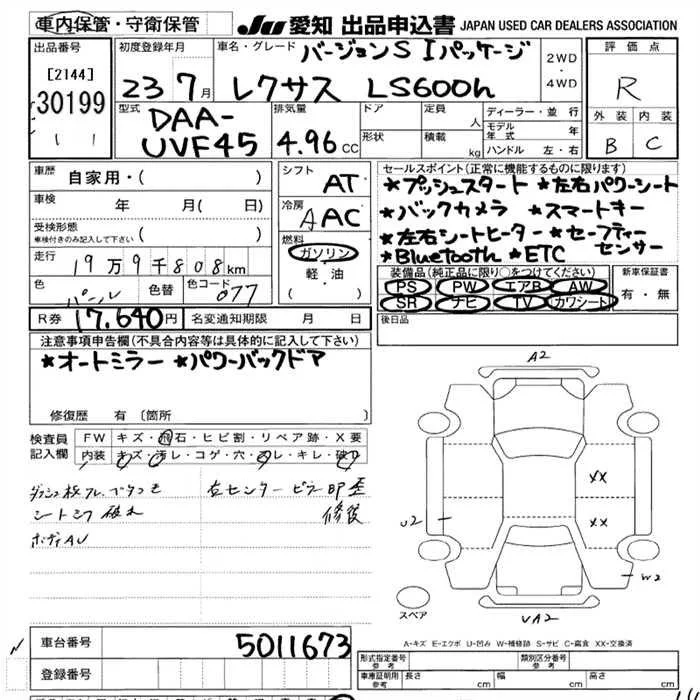 車内保管・守衛保管
JU 愛知 出品申込書 JAPAN USED CAR DEALERS ASSOCIATION
出品番号
[2144]
30199
1 1
初度登録年月
23 7月
車名・グレード
バージョンS Iパッケージ
レクサス LS600h
2WD
・
4WD
評価点
R
外装 内装
B C
型式
DAA-
UVF45
排気量
4.96 cc
ドア
形状
定員 人
積載 kg
ディーラー・並行
モデル年式 年
ハンドル 左・右
車歴
自家用・( )
車検
年 月( 日)
受検形態
車検付きのみ記入して下さい ( )
走行
19万9千808km
色
パール
色替
色コード
077
R券 17.640円 名変通知期限 月 日
シフト
AT
冷房
AAC
燃料
ガソリン
・
軽・油
( )
セールスポイント(正常に機能するものに限ります)
★プッシュスタート ★左右パワーシート
★バックカメラ ★スマートキー
★左右シートヒーター ★セーフティーセンサー
★Bluetooth ★ETC
装備品(純正品に限り○をつけてください)
PS PW エアB AW
SR ナビ TV カワシート
新車保証書
有・無
後日品
注意事項申告欄(不具合内容等は具体的に記入して下さい)
★オートミラー ★パワーバックドア
修復歴 有(箇所 )
検査員記入欄
FW キズ・飛石・ヒビ割・リペア跡・X要
内装 キズ・汚レ・コゲ・穴・スレ・キレ・破レ
右センターピラー凹歪
修復
ボディAU
A2
XX
XX
U2
W2
UA2
スペア
A-キズ E-エクボ U-凹み W-補修跡 S-サビ C-腐食 XX-交換済
車台番号 5011673
登録番号
形式指定番号
参考
類別区分番号
参考
車庫証明用
参考
長さ cm
幅 cm
高さ cm